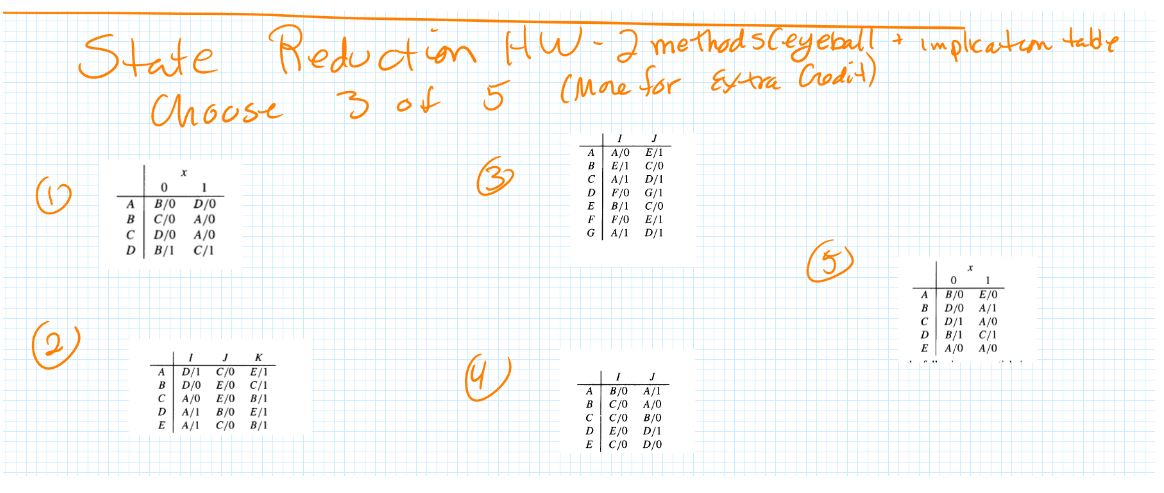 State Reduction HW - 2 methods (eyeball + implication table
Choose 3 of 5 (More for Extra Credit)
①
x
0 1
A B/0 D/0
B C/0 A/0
C D/0 A/0
D B/1 C/1
②
I J K
A D/1 C/0 E/1
B D/0 E/0 C/1
C A/0 E/0 B/1
D A/1 B/0 E/1
E A/1 C/0 B/1
③
I J
A A/0 E/1
B E/1 C/0
C A/1 D/1
D F/0 G/1
E B/1 C/0
F F/0 E/1
G A/1 D/1
④
I J
A B/0 A/1
B C/0 A/0
C C/0 B/0
D E/0 D/1
E C/0 D/0
⑤
x
0 1
A B/0 E/0
B D/0 A/1
C D/1 A/0
D B/1 C/1
E A/0 A/0